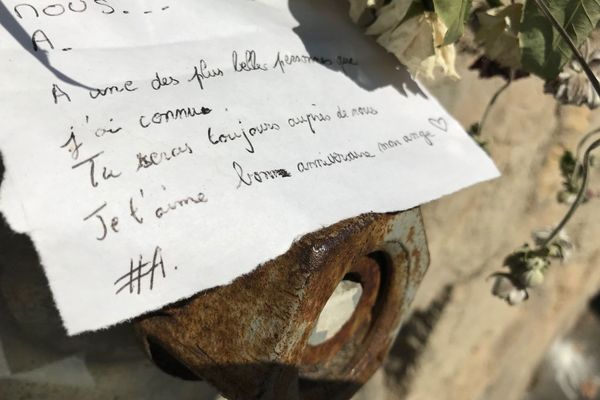 nous...
A.
A une des plus belles personnes que
j'ai connue.
Tu seras toujours auprès de nous
Je t'aime bonne anniversaire mon ange ♡
#A.